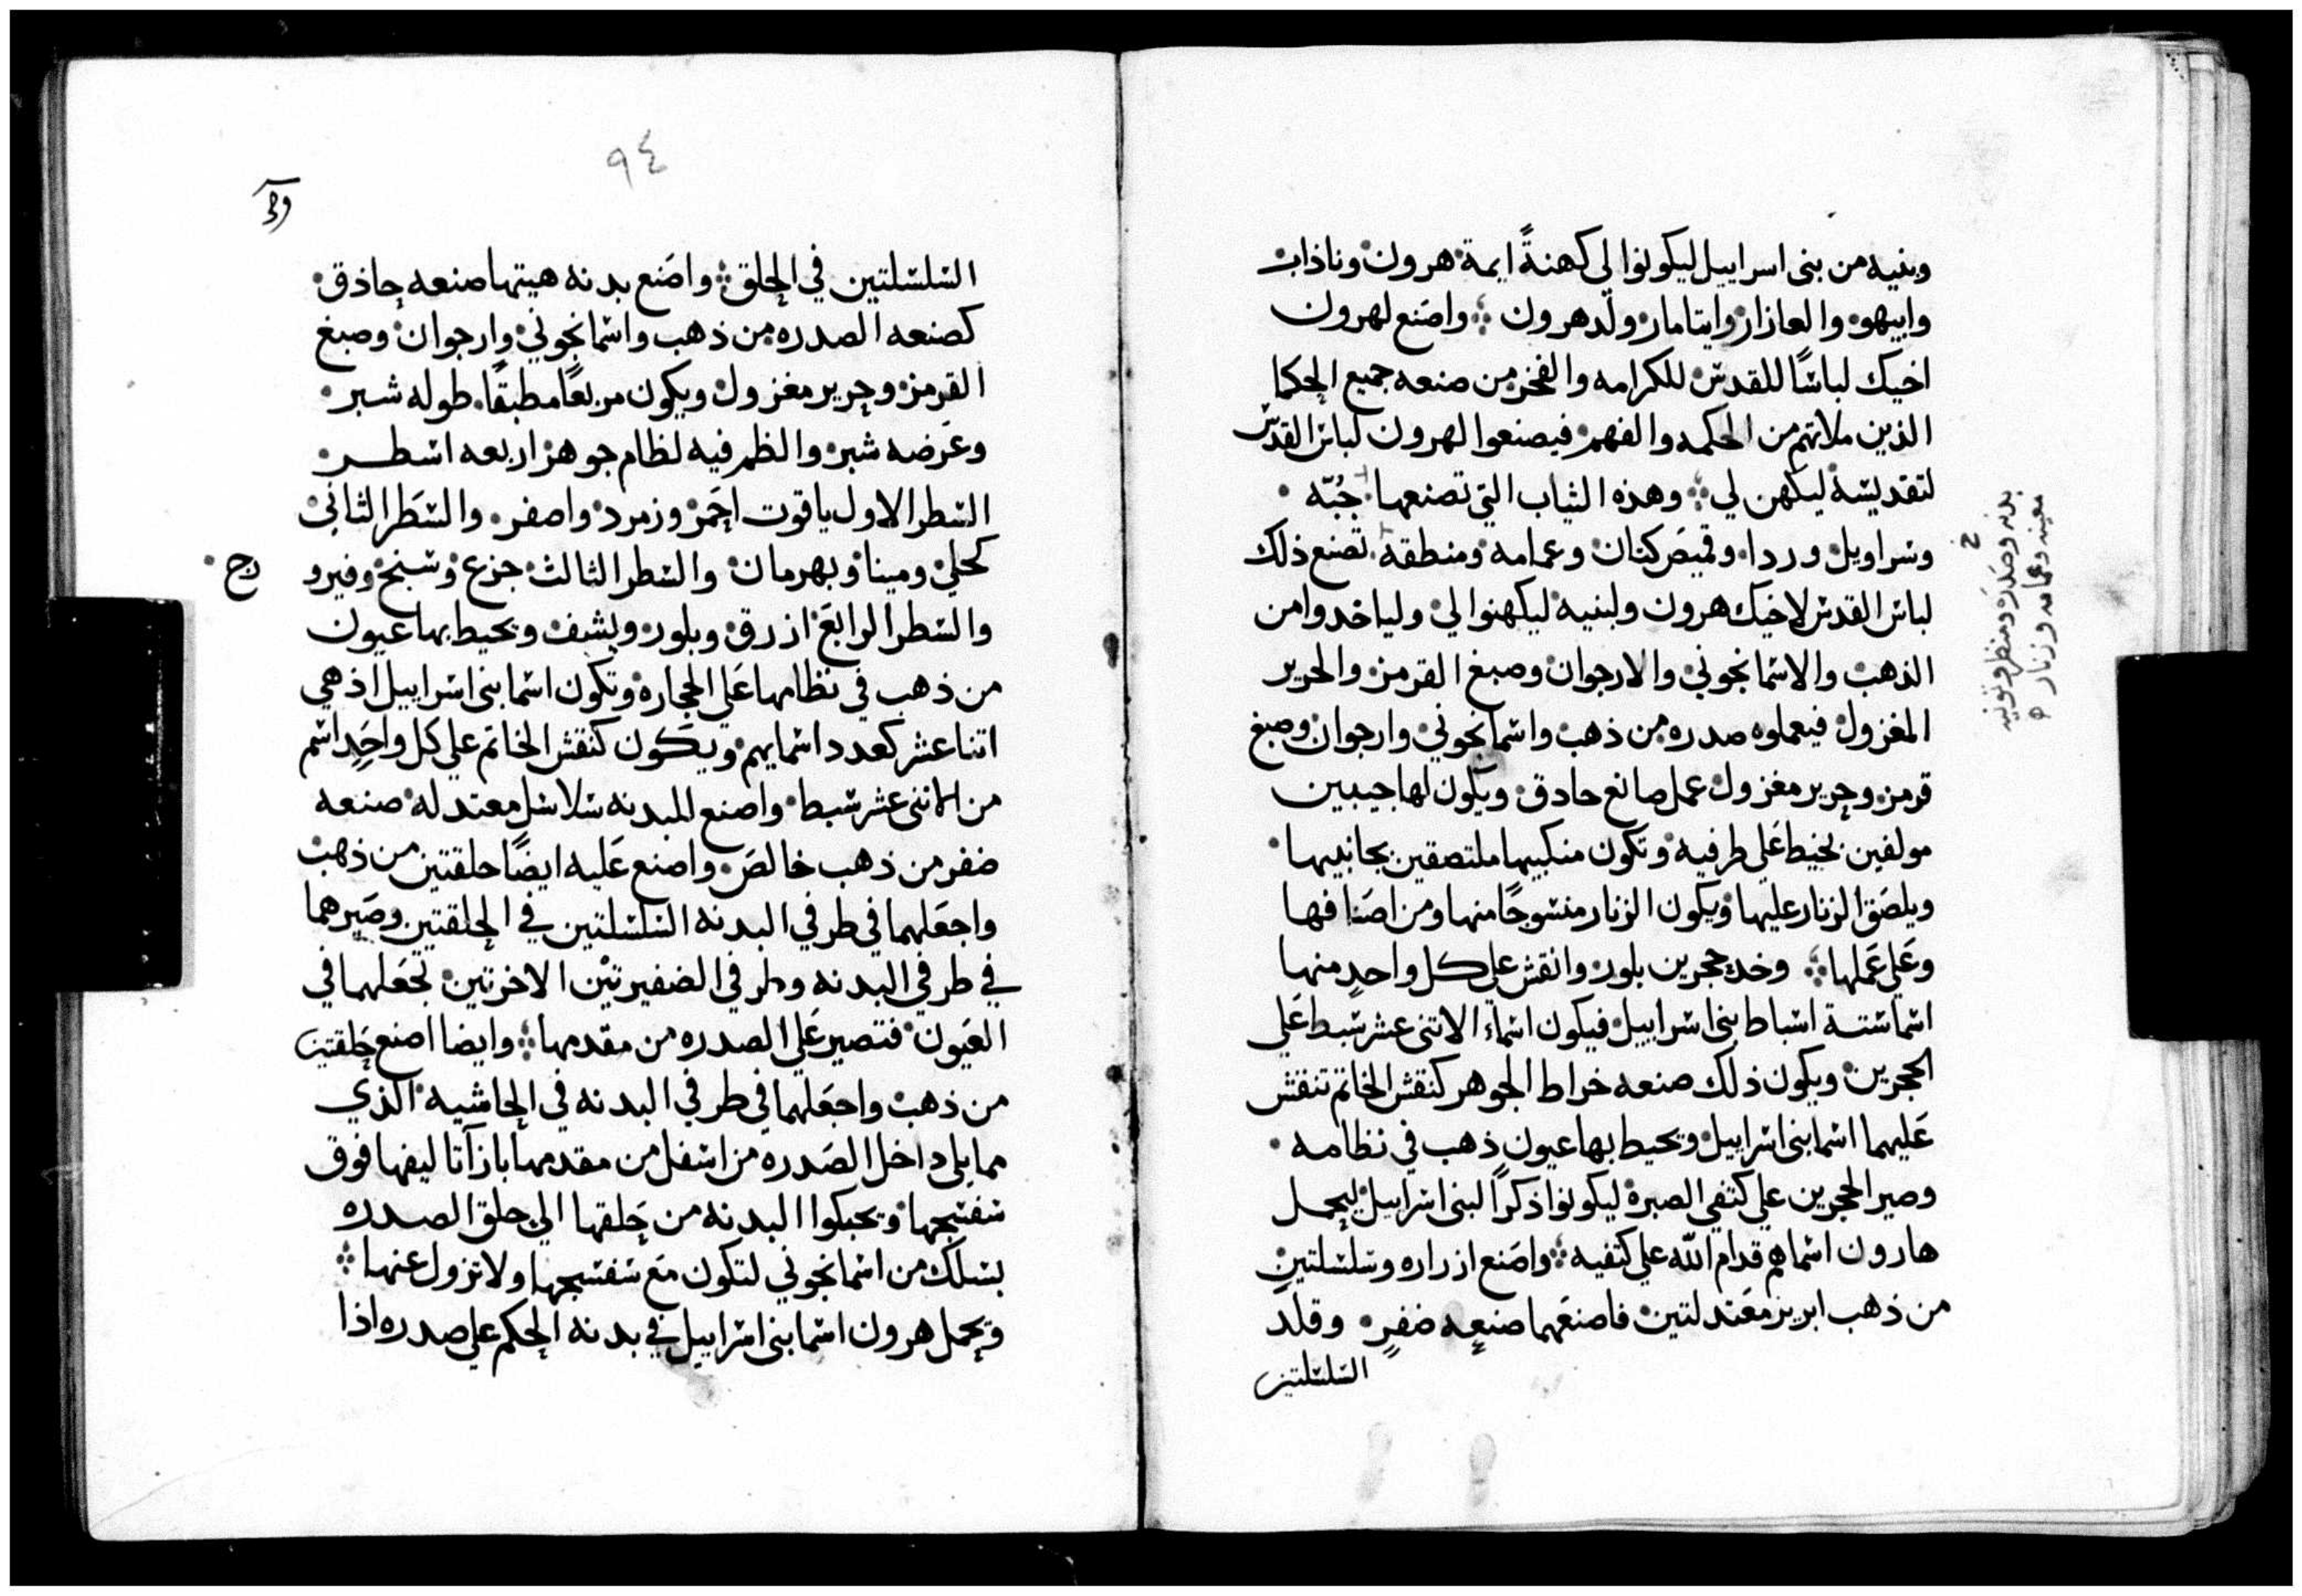 وبنيه من بنى اسراييل ليكونوا لي كهنةً ايمة هرون وناذاب
وابيهو والعازار وايتامار ولد هرون واصنع لهرون
اخيك لباسًا للقدس للكرامه والفخر من صنعه جميع الحكما
الذين ملاتهم من الحكمه والفهم فيصنعوا لهرون لباس القدس
لتقديسه ليكهن لي وهذه الثياب التي تصنعها جُبّه
وسراويل وردا وقميص كتان وعمامه ومنطقه تصنع ذلك
لباس القدس لاخيك هرون ولبنيه ليكهنوا لي ولياخدوا من
الذهب والاسمانجوني والارجوان وصبغ القرمز والحرير
المغزول فيعملوه صدره من ذهب واسمانجوني وارجوان وصبغ
قرمز وحرير مغزول عمل صانع حادق ويكون لها جيبين
مولفين بخيط علي طرفيه وتكون منكبيها ملتصقين بجانبيها
ويلصق الزنار عليها ويكون الزنار منسوجًا منها ومن اصنافها
وعلي عملها وخد حجرين بلور وانقش علي كل واحدٍ منها
اسما ستة اسباط بني اسراييل فيكون اسماء الاتنى عشر سبط علي
الحجرين ويكون ذلك صنعه خراط الجوهر كنقش الخاتم تنقش
عليهما اسما بنى اسراييل ويحيط بها عيون ذهب في نظامه
وصير الحجرين علي كتفي الصبرة ليكونوا ذكرًا لبنى اسراييل ليحمل
هارون اسماهم قدام الله علي كتفيه واصنع ازراره وسلسلتين
من ذهب ابريز معتدلتين فاصنعهما صنعه ضفرٍ وقلد
السلسلتين
بدنه وصدره ومنظر وتونيه
معينه وعمامه وزنار
٩٤
السلسلتين في الحلق واصنع بدنه هيتها صنعه حاذق
كصنعه الصدره من ذهب واسمانجوني وارجوان وصبغ
القرمز وحرير مغزول ويكون مربعًا مطبقًا طوله شبر
وعرضه شبر والظم فيه لظام جوهر اربعه اسطر
السطر الاول ياقوت احمر وزمرد واصفر والسطر الثاني
كحلي ومينا وبهرمان والسطر الثالث جزع وسبج وفيرو
زج
والسطر الرابع ازرق وبلور ويشف ويحيط بها عيون
من ذهب في نظامها علي الحجاره وتكون اسما بنى اسراييل اذ هي
اتنا عشر كعدد اسمايهم ويكون كنقش الخاتم علي كل واحدٍ اسم
من الاتنى عشر سبط واصنع للبدنه سلاسل معتدله صنعه
ضفر من ذهب خالص واصنع عليه ايضًا حلقتين من ذهب
واجعلهما في طرفي البدنه السلسلتين في الحلقتين وصيرهما
في طرفي البدنه وطرفي الضفيرتين الاخرتين تجعلهما في
العيون فتصير علي الصدره من مقدمها وايضا اصنع حلقتين
من ذهب واجعلهما في طرفي البدنه في الحاشيه الذي
مما يلي داخل الصدره من اسفل من مقدمها بازآ تاليفها فوق
سفسجها ويحبكوا البدنه من حلقها الي حلق الصدره
بسلك من اسمانجوني لتكون مع سفسجها ولا تزول عنها
ويحمل هرون اسما بنى اسراييل في بدنه الحكم علي صدره اذا